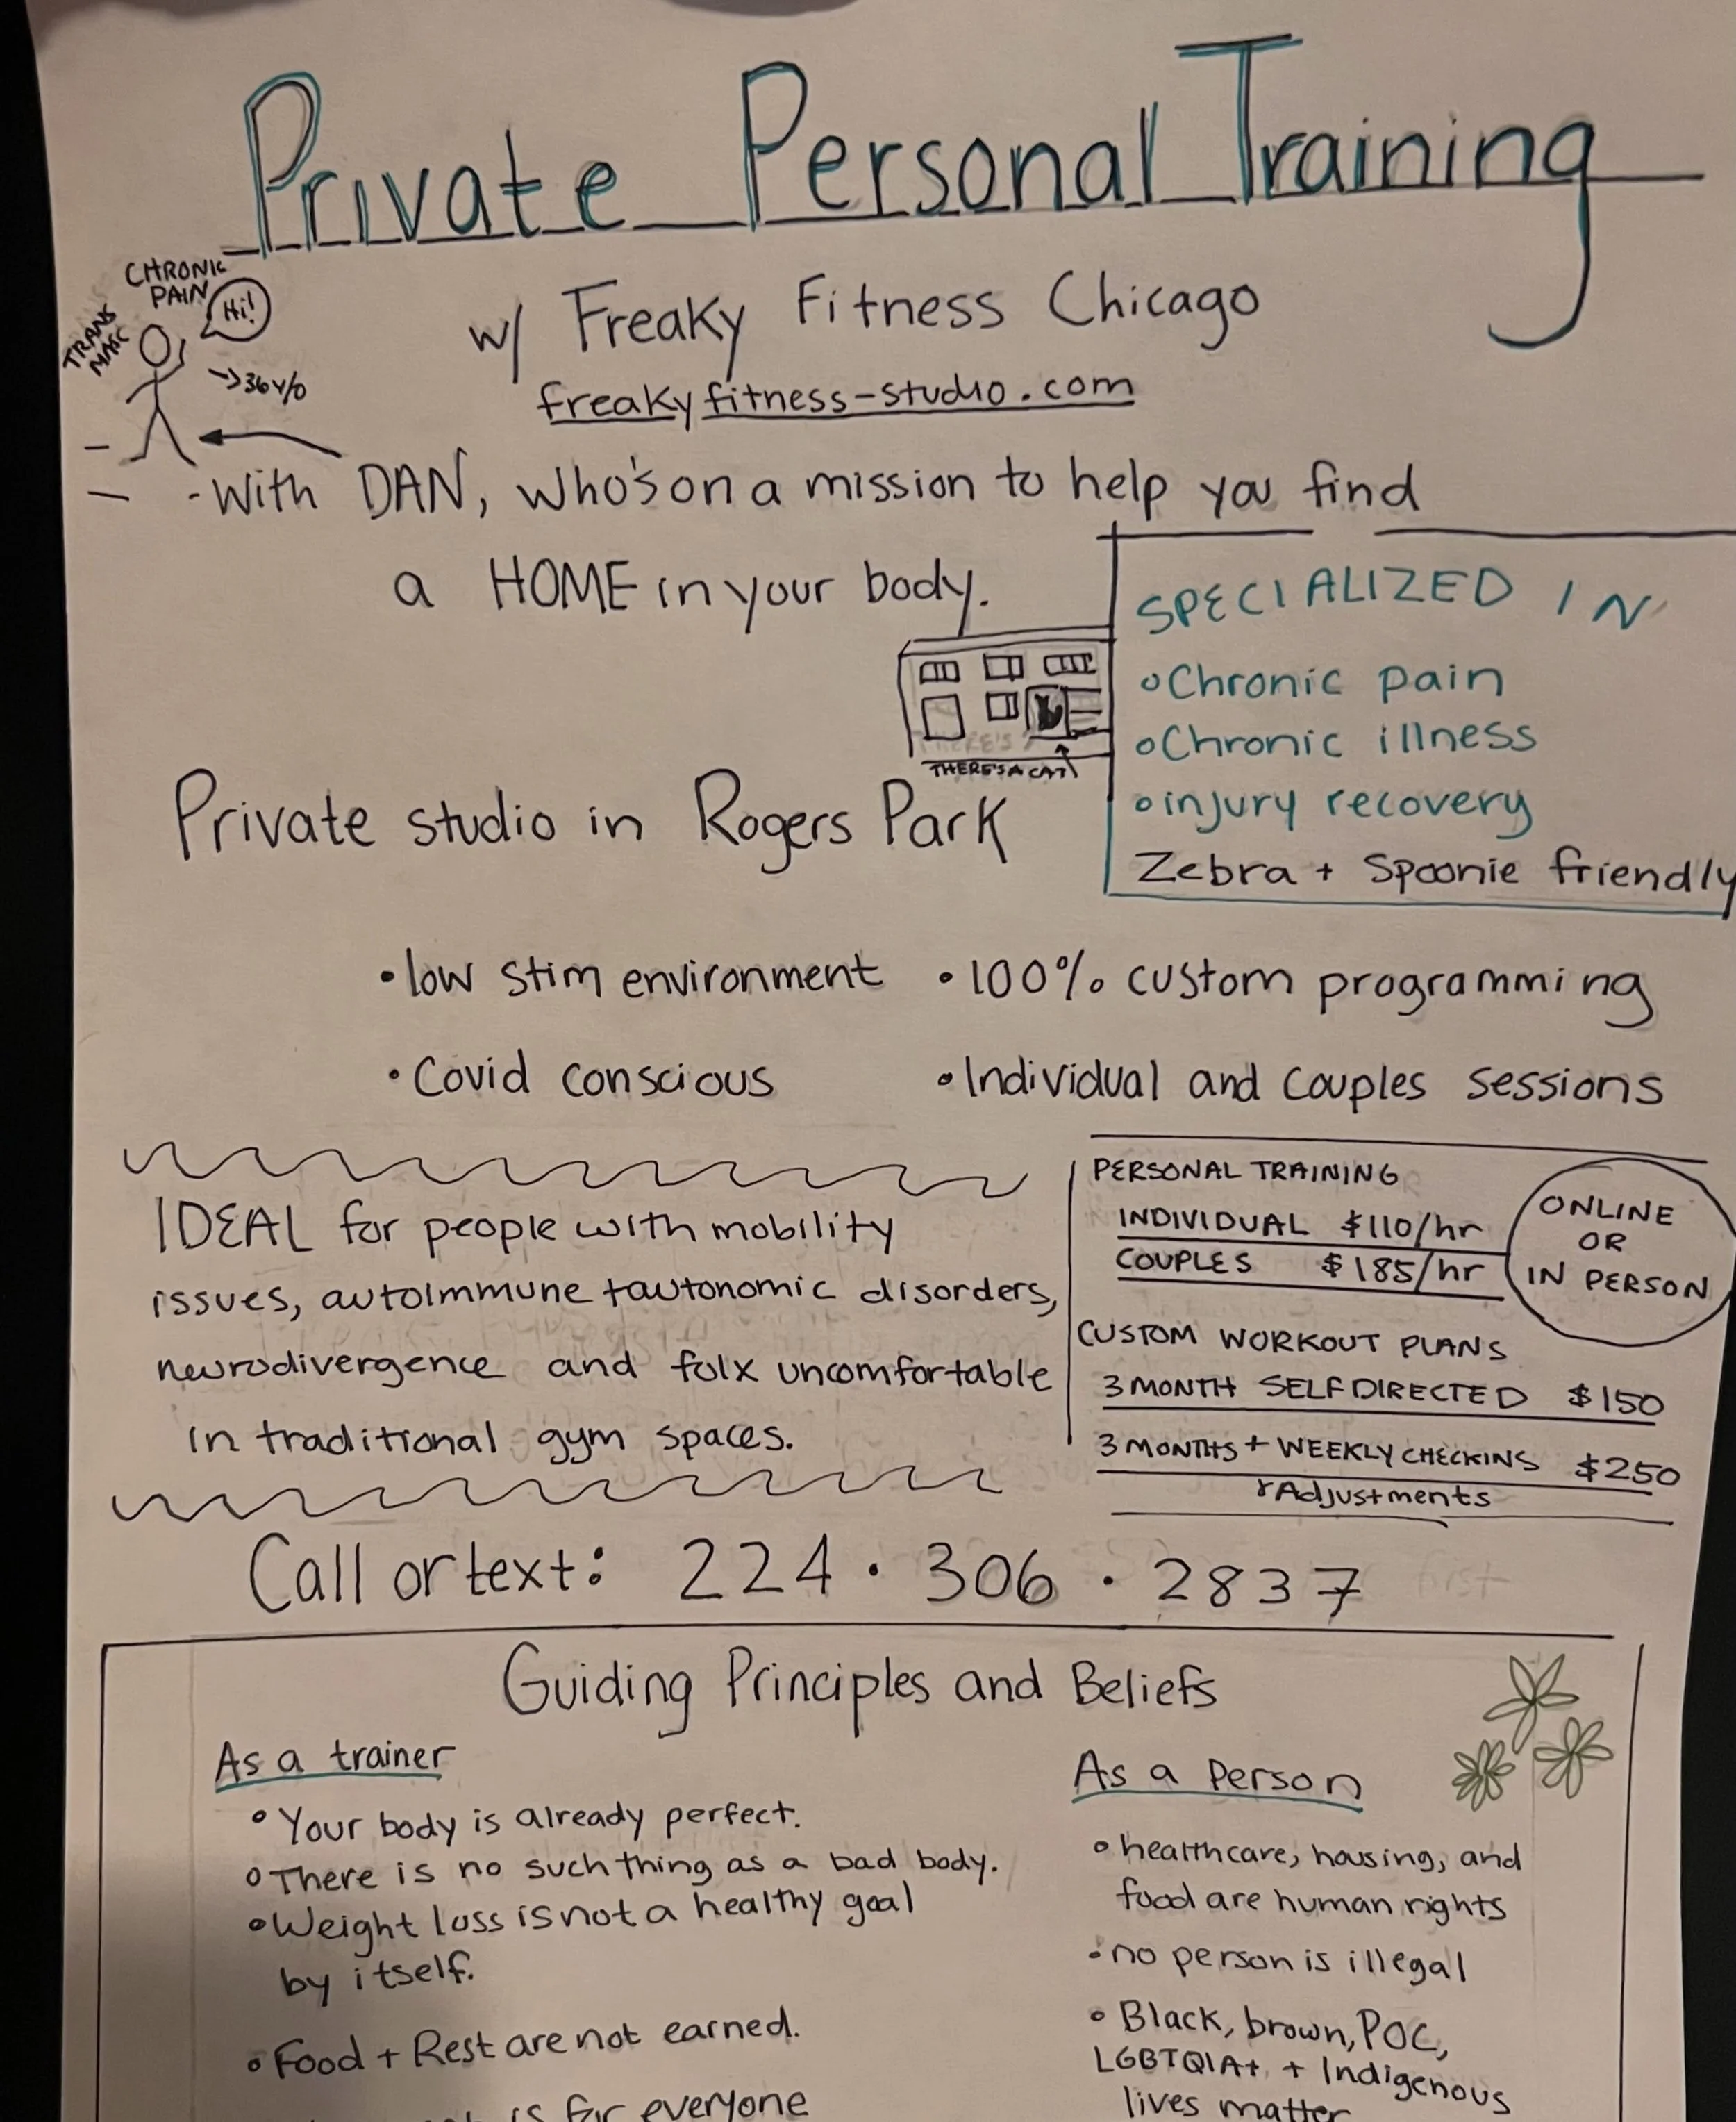 Private Personal Training
CHRONIC
PAIN
Hi!
TRANS
MASC
→36 Y/O
w/ Freaky Fitness Chicago
freakyfitness-studio.com
-With DAN, who's on a mission to help you find
a HOME in your body.
SPECIALIZED IN
Chronic pain
Chronic illness
injury recovery
Zebra + Spoonie friendly
THERE'S A CAT
Private studio in Rogers Park
• low stim environment
• 100% custom programming
• Covid conscious
• Individual and couples sessions
IDEAL for people with mobility
issues, autoimmune + autonomic disorders,
neurodivergence and folx uncomfortable
in traditional gym spaces.
PERSONAL TRAINING
INDIVIDUAL $110/hr
COUPLES $185/hr
ONLINE
OR
IN PERSON
CUSTOM WORKOUT PLANS
3 MONTH SELF DIRECTED $150
3 MONTHS + WEEKLY CHECKINS $250
+ Adjustments
Call or text: 224 · 306 · 2837
Guiding Principles and Beliefs
As a trainer
• Your body is already perfect.
• There is no such thing as a bad body.
• Weight loss is not a healthy goal
by itself.
• Food + Rest are not earned.
is for everyone
As a Person
• healthcare, housing, and
food are human rights
• no person is illegal
• Black, brown, POC,
LGBTQIA+ + Indigenous
lives matter